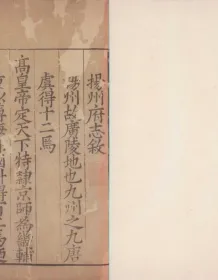 揚州府志敘
揚州故廣陵地也九州之九唐
虞得十二焉
高皇帝定天下特隸京師為畿輔